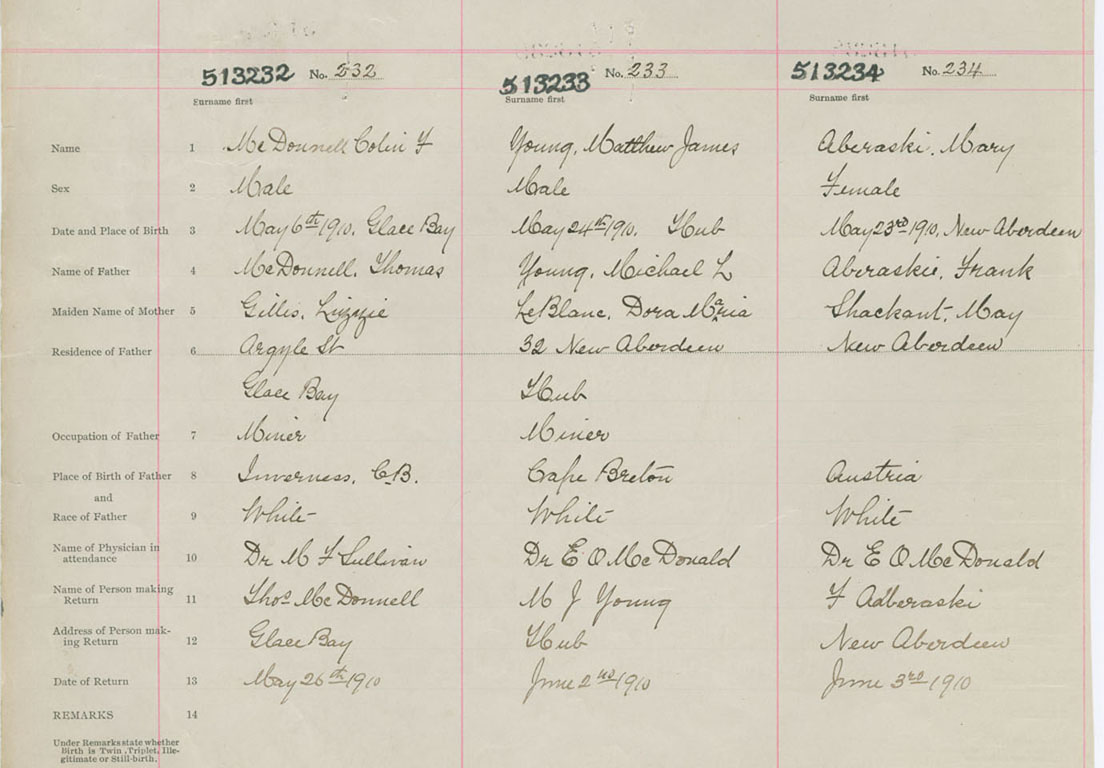 513232 No. 232 513233 No. 233 513234 No. 234
Surname first Surname first Surname first
Name 1 McDonnell Colin F Young, Matthew James Aberaski, Mary
Sex 2 Male Male Female
Date and Place of Birth 3 May 6th 1910. Glace Bay May 24th 1910. Hub May 23rd 1910, New Aberdeen
Name of Father 4 McDonnell, Thomas Young, Michael L Aberaskie, Frank
Maiden Name of Mother 5 Gillis, Lizzie LeBlanc, Dora Maria Shackant, May
Residence of Father 6 Argyle St 32 New Aberdeen New Aberdeen
Glace Bay Hub
Occupation of Father 7 Miner Miner
Place of Birth of Father 8 Inverness, C.B. Cape Breton Austria
and
Race of Father 9 White White White
Name of Physician in
attendance 10 Dr M F Sullivan Dr E O McDonald Dr E O McDonald
Name of Person making
Return 11 Thos McDonnell M J Young F Adberaski
Address of Person mak-
ing Return 12 Glace Bay Hub New Aberdeen
Date of Return 13 May 26th 1910 June 2nd 1910 June 3rd 1910
REMARKS 14
Under Remarks state whether
Birth is Twin, Triplet, Ille-
gitimate or Still-birth.